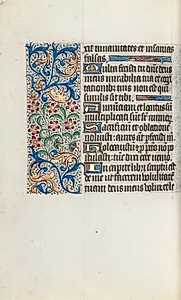 xit in vanitates et insanias
falsas.
Multa fecisti tu dñe deus
meus mirabilia tua et cogi
tationibus tuis non est qui
similis sit tibi.
Annunciavi et locutus sum
multiplicati sunt super numerum
Sacrificium et oblationem
noluisti: aures aut perfecisti m
Holocaustum et pro pec no po
stulasti: tunc dixi ecce venio.
In capite libri scriptum est
de me ut facerem voluntatē
tuam deus meus volui et le